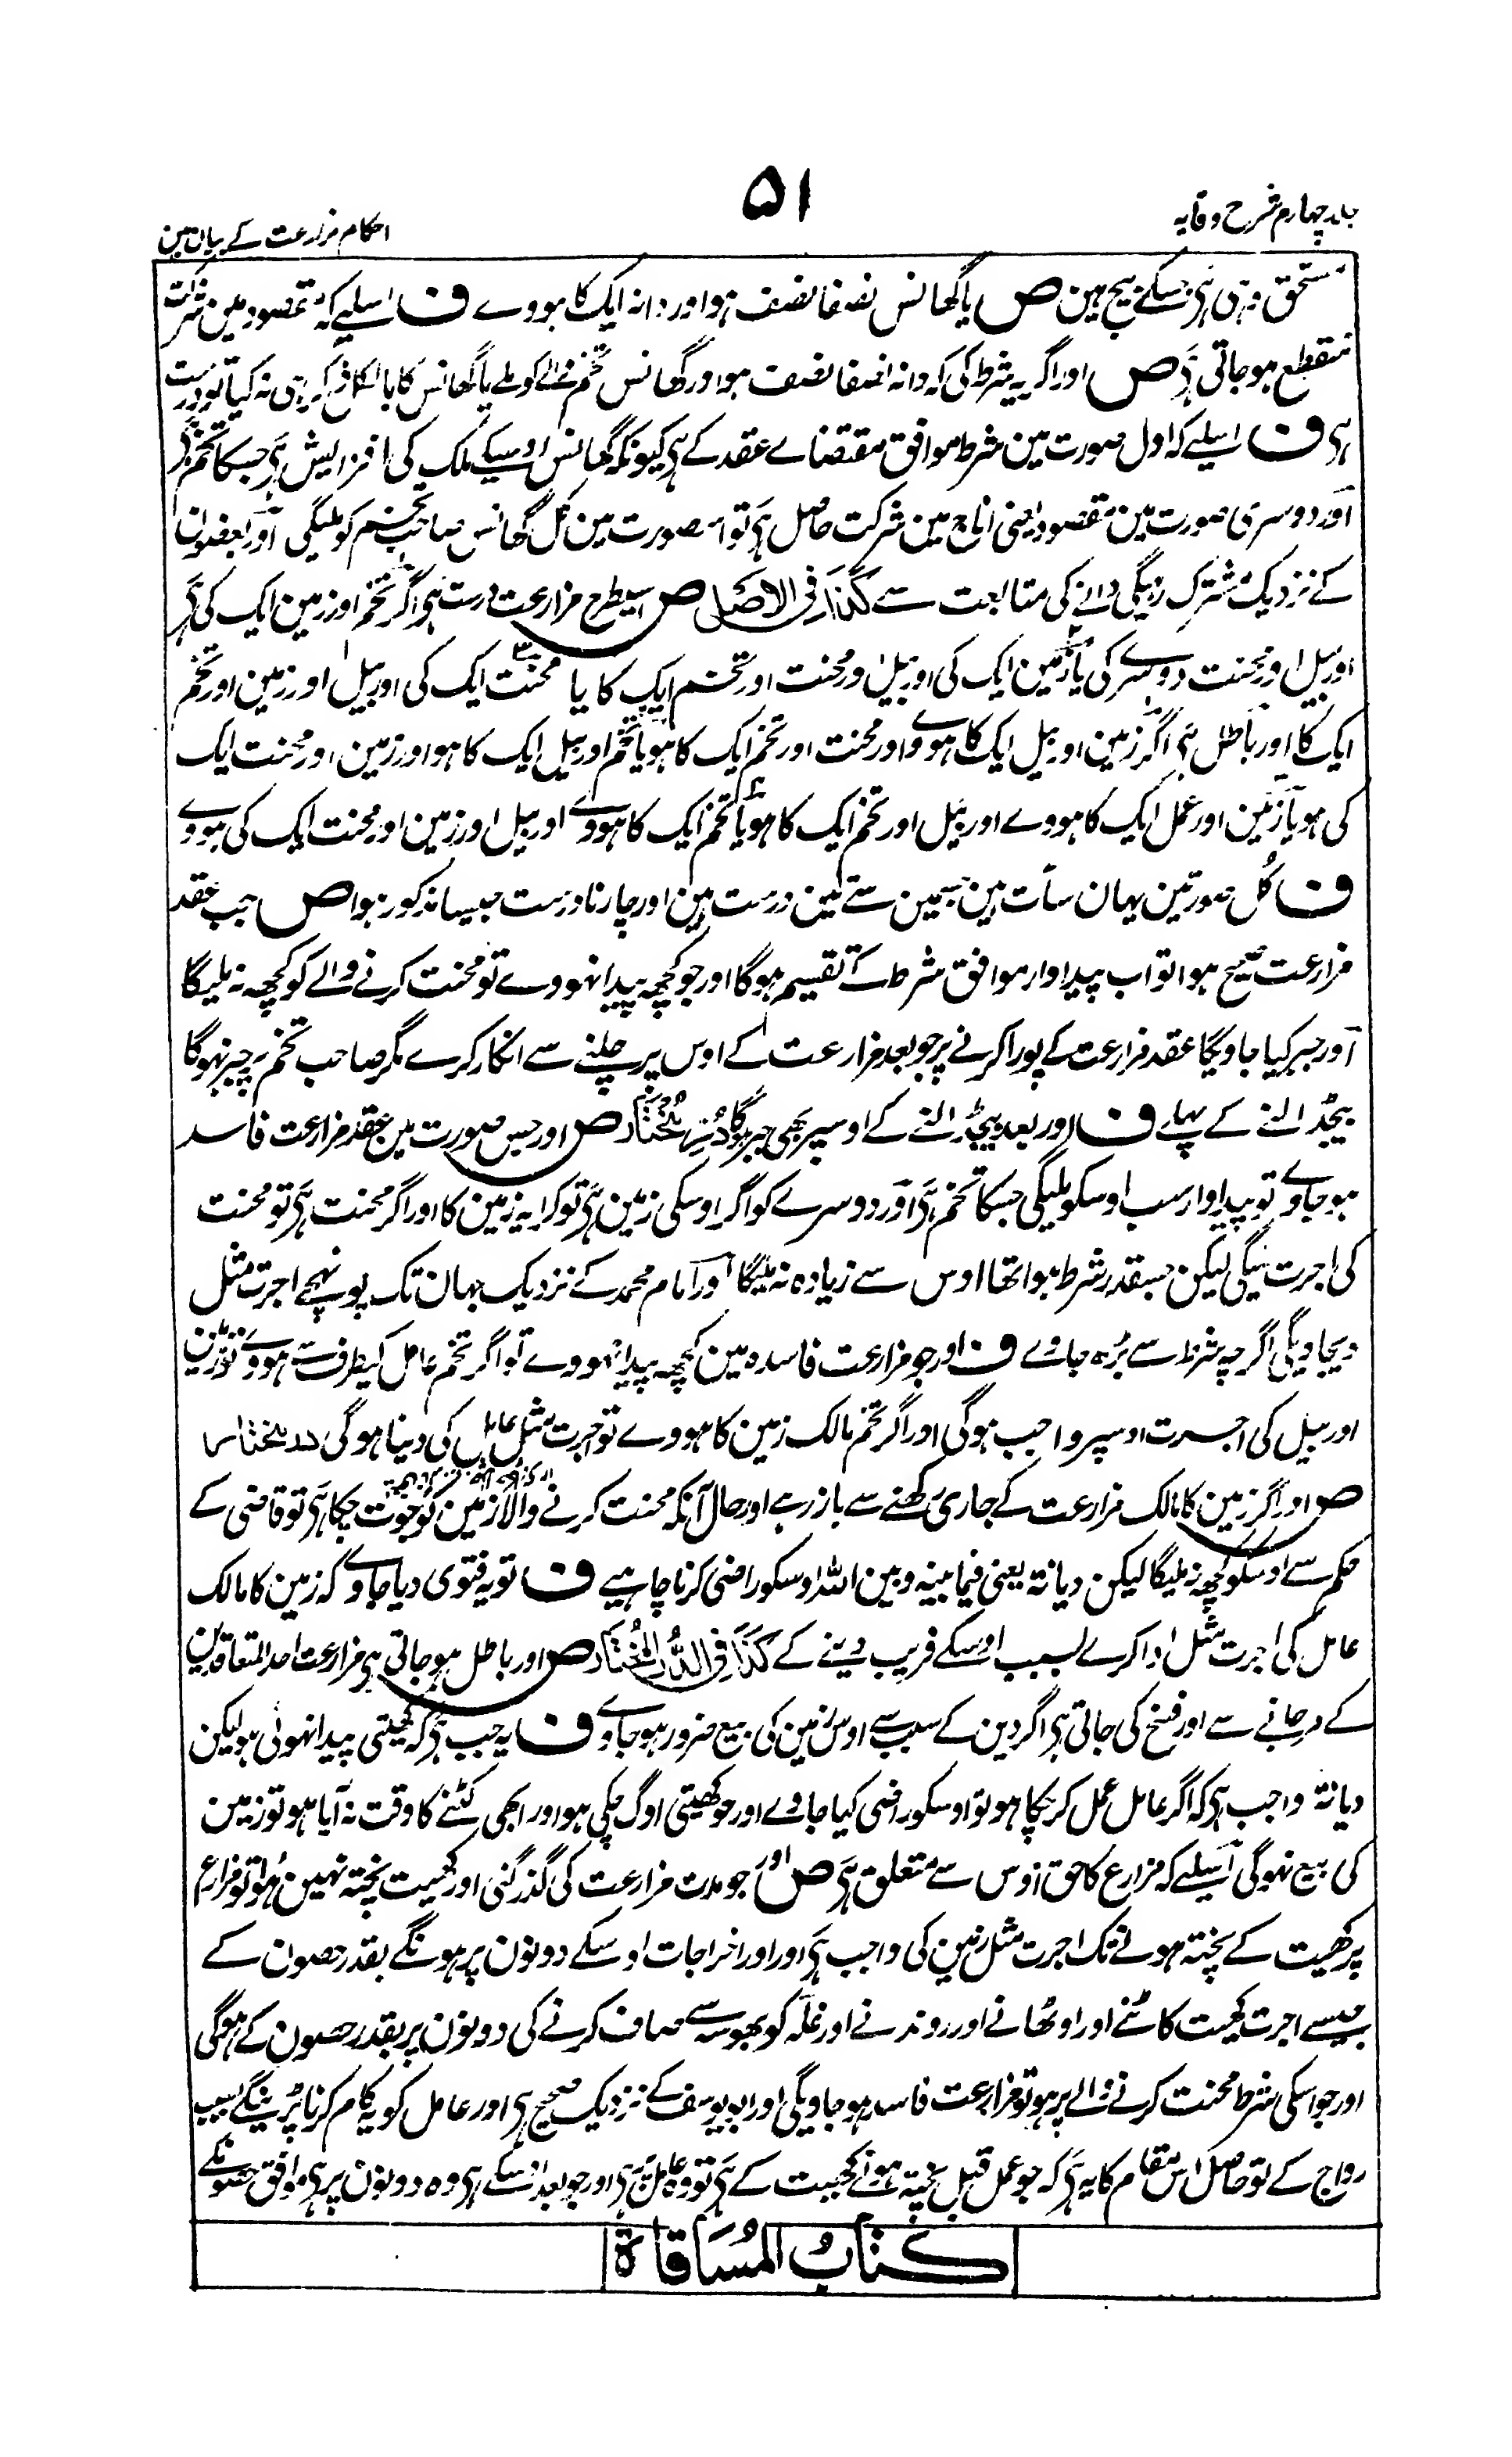 جلد چہارم شرح وقایہ
۵۱
احکام مزارعت کے بیان مین
مستحق وہی ہی جسکے بیج ہین ص یا گھانس نصفا نصف ہو اور دانہ ایک کا ہووے ف اسلیے کہ مقصود مین شرکت
منقطع ہو جاتی ہی ص اور اگر یہ شرط کی کہ دانہ نصفا نصف ہو اور گھانس تخم والے کو ملے یا گھانس کا بالکل ذکر ہی نہ کیا تو درست
ہی ف اسلیے کہ اول صورت مین شرط موافق مقتضاے عقد کے ہی کیونکہ گھانس اوسیکے ملک کی افزایش ہی جسکا تخم ہی
اور دوسری صورت مین مقصود یعنی اناج مین شرکت حاصل ہی تو اس صورت مین کل گھانس صاحب تخم کو ملیگی اور بعضون
کے نزدیک مشترک رہیگی دانے کی متابعت سے کذا فی الاصل ص اسیطرح مزارعت درست ہی اگر تخم اور زمین ایک کی ہی
اور بیل اور محنت دوسرے کی یا زمین ایک کی اور بیل اور محنت اور تخم ایک کا یا محنت ایک کی اور بیل اور زمین اور تخم
ایک کا اور باطل ہی اگر زمین اور بیل ایک کا ہووے اور محنت اور تخم ایک کا ہو یا تخم اور بیل ایک کا ہو اور زمین اور محنت ایک
کی ہو یا زمین اور عمل ایک کا ہووے اور بیل اور تخم ایک کا ہو یا تخم ایک کا ہووے اور بیل اور زمین اور محنت ایک کی ہووے
ف کل صورتین یہان سات ہین جسمین سے تین درست ہین اور چار نادرست جیسا مذکور ہوا ص جب عقد
مزارعت صحیح ہوا تو اب پیداوار موافق شرط کے تقسیم ہوگا اور جو کچھ پیدا نہووے تو محنت کرنے والے کو کچھ نہ ملیگا
اور جبر کیا جاویگا عقد مزارعت کے پورا کرنے پر جو بعد مزارعت کے اوس پر چلنے سے انکار کرے مگر صاحب تخم پر جبر نہوگا
بیج ڈالنے کے پہلے ف اور بعد بیج ڈالنے کے اوسپر بھی جبر ہوگا در مختار ص اور جس صورت مین عقد مزارعت فاسد
ہو جاوے تو پیداوار سب اوسکو ملیگی جسکا تخم ہی اور دوسرے کو اگر اوسکی زمین ہی تو کرایہ زمین کا اور اگر محنت ہی تو محنت
کی اجرت ملیگی لیکن جسقدر شرط ہوا تھا اوس سے زیادہ نہ ملیگا اور امام محمد کے نزدیک جہان تک پہونچے اجرت مثل
دیجاویگی اگرچہ شرط سے بڑہ جاوے ف اور جو مزارعت فاسدہ مین کچھ پیدا نہووے تو اگر تخم عامل کیطرف سے ہووے تو زمین
اور بیل کی اجرت اوسپر واجب ہوگی اور اگر تخم مالک زمین کا ہووے تو اجرت مثل عامل کی دینا ہوگی در مختار
ص اور اگر زمین کا مالک مزارعت کے جاری رکھنے سے باز رہے اور حال آنکہ محنت کرنے والا زمین کو جوت چکا ہی تو قاضی کے
حکم سے اوسکو کچھ نہ ملیگا لیکن دیانۃ یعنی فیما بینہ و بین اللہ اوسکو راضی کرنا چاہیے ف تو یہ فتوی دیا جاوے گا کہ زمین کا مالک
عامل کی اجرت مثل ادا کرے بسبب اوسکے فریب دینے کے کذا فی الدر المختار ص اور باطل ہو جاتی ہی مزارعت احد المتعاقدین
کے مر جانے سے اور فسخ کی جاتی ہی اگر دین کے سبب سے اوس زمین کی بیع ضرور ہو جاوے ف یہ جب ہی کہ کھیتی پیدا نہوئی ہو لیکن
دیانۃ واجب ہی کہ اگر عامل عمل کر چکا ہو تو اوسکو راضی کیا جاوے اور جو کھیتی اوگ چکی ہو اور ابھی کٹنے کا وقت نہ آیا ہو تو زمین
کی بیع نہوگی اسلیے کہ مزارع کا حق اوس سے متعلق ہی ص اور جو مدت مزارعت کی گذر گئی اور کھیت پختہ نہین ہوا تو مزارع
پر کھیت کے پختہ ہونے تک اجرت مثل زمین کی واجب ہی اور اخراجات اوسکے دونون پر ہونگے بقدر حصون کے
جیسے اجرت کھیت کاٹنے اور اوٹھانے اور روندنے اور غلہ کو بھوسہ سے صاف کرنے کی دونون پر بقدر حصون کے ہوگی
اور جو اسکی شرط محنت کرنے والے پر ہو تو مزارعت فاسد ہو جاویگی اور ابو یوسف کے نزدیک صحیح ہی اور عامل کو یہ کام کرنا پڑینگے بسبب
رواج کے تو حاصل اس مقام کا یہ ہی کہ جو عمل قبل پختہ ہونے کھیت کے ہی تو وہ عامل پر ہی اور جو بعد اوسکے ہی وہ دونون پر ہی موافق حصونکے
کتاب المساقاۃ